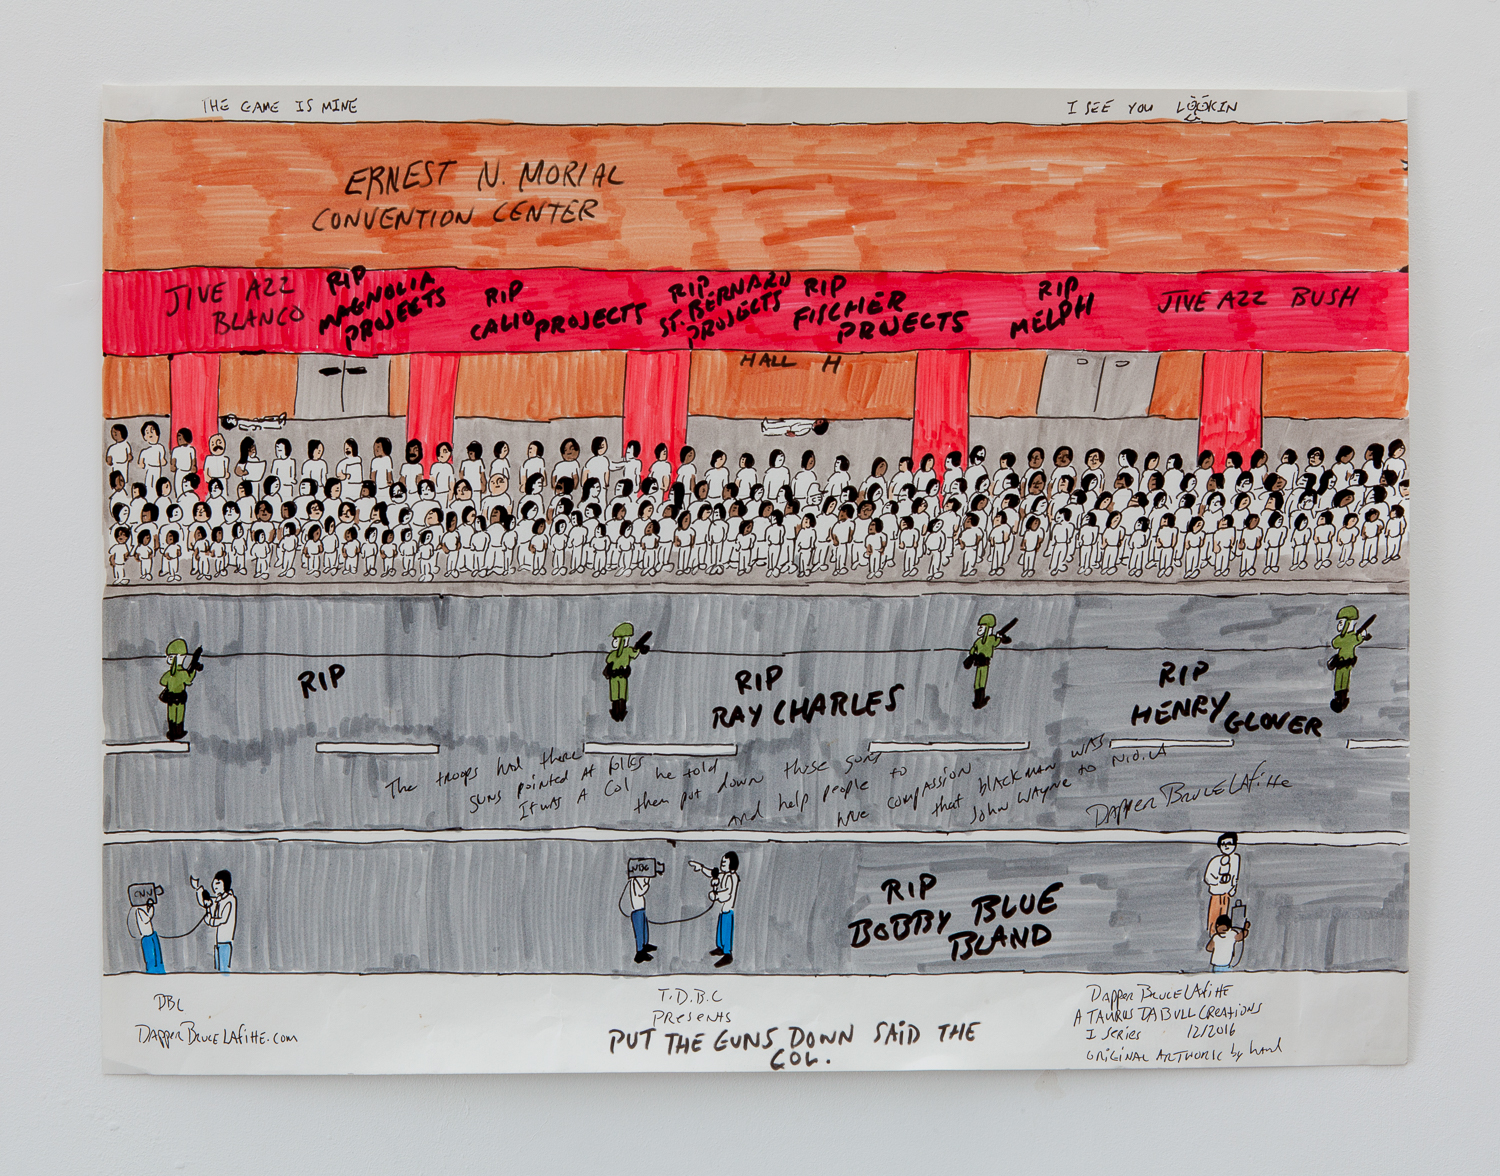 THE GAME IS MINE
I SEE YOU LOOKIN
ERNEST N. MORIAL
CONVENTION CENTER
JIVE AZZ
BLANCO
RIP
MAGNOLIA
PROJECTS
RIP
CALIO PROJECTS
RIP
ST. BERNARD
PROJECTS
RIP
FISCHER
PROJECTS
RIP
MELPH
JIVE AZZ BUSH
HALL H
RIP
RIP
RAY CHARLES
RIP
HENRY GLOVER
The troops had there
guns pointed At folks
It was A Col he told
them put down those guns
And help people to
have compassion
that blackman was
John Wayne to N.O. LA
Dapper Bruce Lafitte
CNN
NBC
RIP
BOBBY BLUE
BLAND
DBL
DapperBruceLafitte.com
T.D.B.C
Presents
PUT THE GUNS DOWN SAID THE
COL.
Dapper Bruce Lafitte
A TAURUS DA BULL CREATIONS
I SERIES 12/2016
ORIGINAL ARTWORK by hand